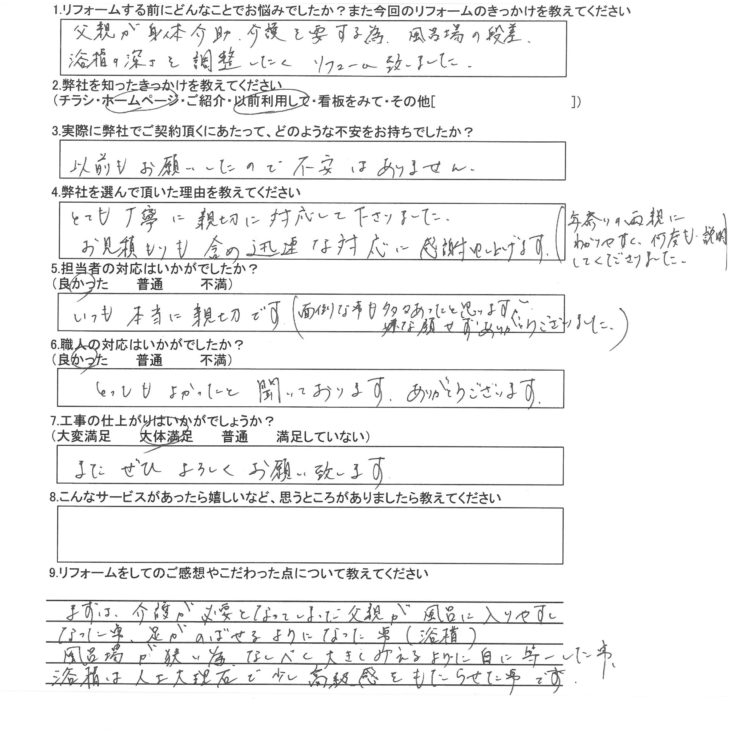 1.リフォームする前にどんなことでお悩みでしたか？また今回のリフォームのきっかけを教えてください
父親が身体介助、介護を要する為、風呂場の段差、
浴槽の深さを調整したくリフォーム致しました。
2.弊社を知ったきっかけを教えてください
(チラシ・ホームページ・ご紹介・以前利用して・看板をみて・その他[ ])
3.実際に弊社でご契約頂くにあたって、どのような不安をお持ちでしたか？
以前もお願いしたので不安はありません。
4.弊社を選んで頂いた理由を教えてください
とても丁寧に親切に対応して下さりました。
お見積もりも含め迅速な対応に感謝申し上げます。
(年寄りの両親に
わかりやすく、何度も説明
してくださりました。)
5.担当者の対応はいかがでしたか？
(良かった 普通 不満)
いつも本当に親切です(面倒な事も多々あったと思いますが
嫌な顔せずありがとうございました。)
6.職人の対応はいかがでしたか？
(良かった 普通 不満)
とってもよかったと聞いております。ありがとうございます。
7.工事の仕上がりはいかがでしょうか？
(大変満足 大体満足 普通 満足していない)
またぜひよろしくお願い致します
8.こんなサービスがあったら嬉しいなど、思うところがありましたら教えてください
9.リフォームをしてのご感想やこだわった点について教えてください
まずは、介護が必要となってしまった父親が風呂に入りやすく
なった事、足がのばせるようになった事(浴槽)
風呂場が狭い為、なるべく大きくみえるように白に統一した事、
浴槽は人工大理石で少し高級感をもたらせた事です。